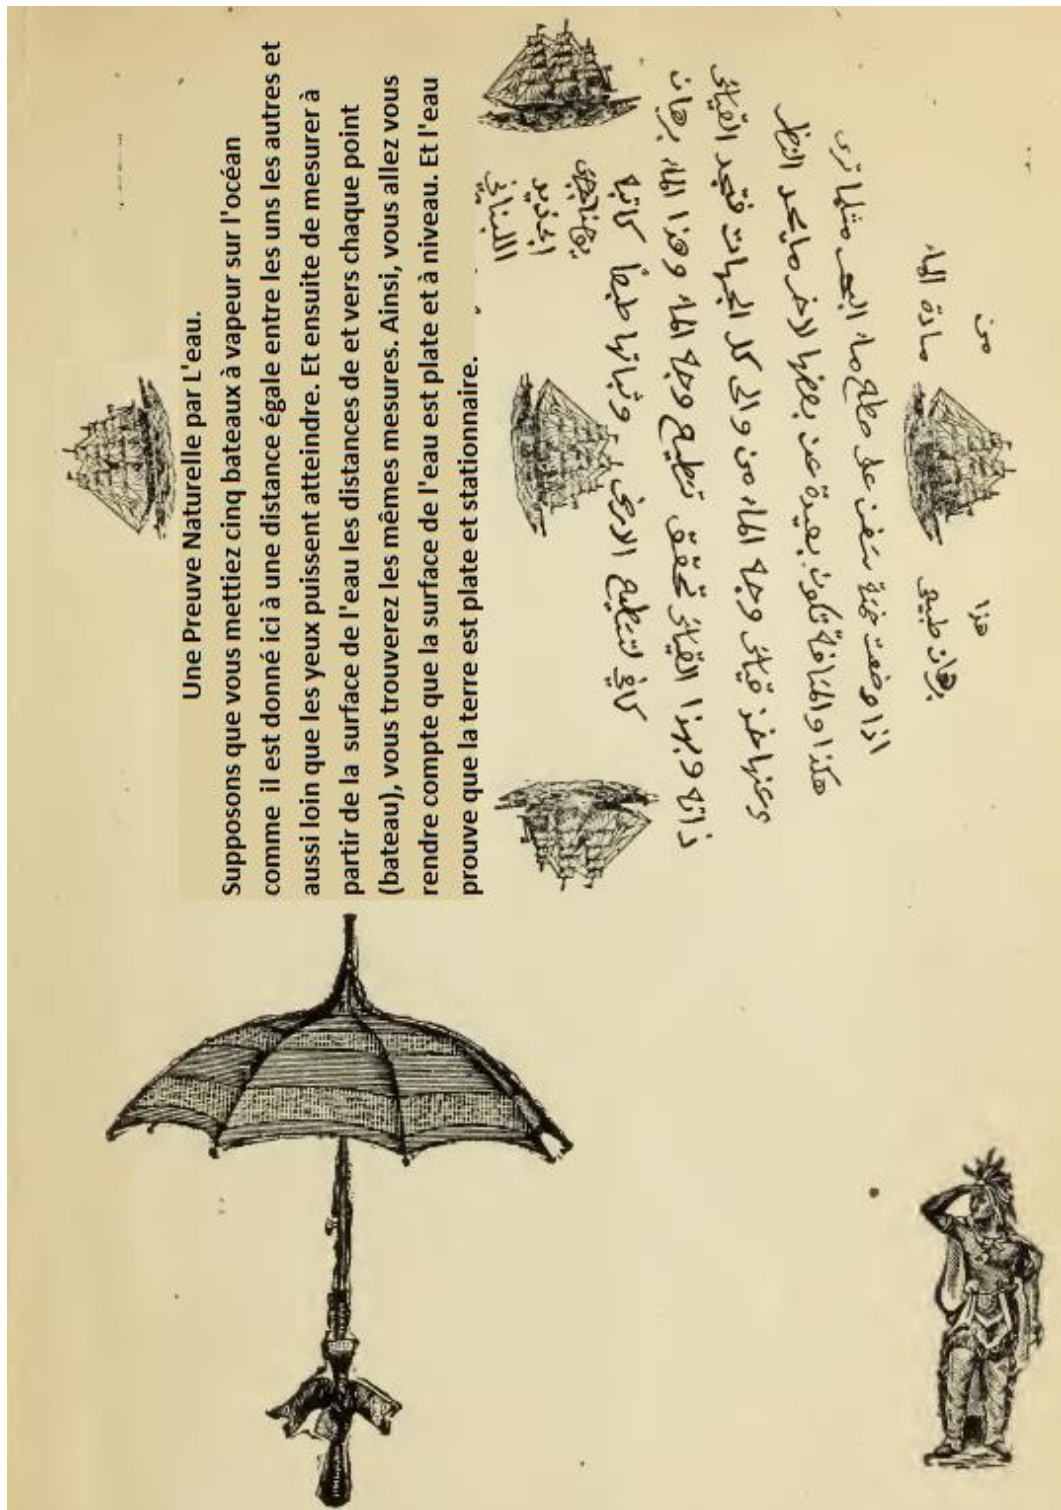 Une Preuve Naturelle par L'eau.
Supposons que vous mettiez cinq bateaux à vapeur sur l'océan
comme il est donné ici à une distance égale entre les uns les autres et
aussi loin que les yeux puissent atteindre. Et ensuite de mesurer à
partir de la surface de l'eau les distances de et vers chaque point
(bateau), vous trouverez les mêmes mesures. Ainsi, vous allez vous
rendre compte que la surface de l'eau est plate et à niveau. Et l'eau
prouve que la terre est plate et stationnaire.
هذا من
برهان طبيعي مادة الماء
اذا وضعت خمسة سفن على سطح ماء البحر مثلما ترى
هكذا والمسافة تكون بعيدة عن بعضها لاخر ما يحد النظر
وعندها خذ قياس وجه الماء من والى كل الجهات فتجد القياس
ذاته وبهذا القياس تحقق تسطيح وجه الماء وهذا الماء برهان
كافي لتسطيح الارض، وثباتها طبعاً كاتبه
اللبناني